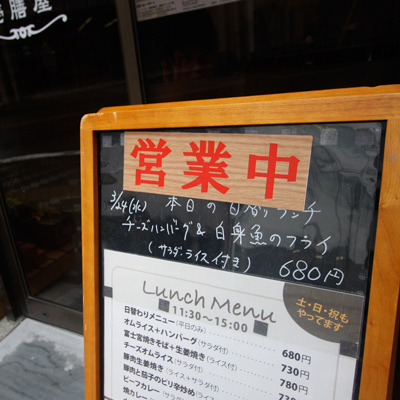 膳屋
営業中
3/24(水) 本日の日替りランチ
チーズハンバーグ&白身魚のフライ
(サラダ・ライス付き) 680円
Lunch Menu
11:30～15:00
土・日・祝も
やってます
日替わりメニュー(平日のみ) 680円
オムライス+ハンバーグ(サラダ付) 730円
富士宮焼きそば+生姜焼き(ライス付) 780円
チーズオムライス(サラダ付) 730円
豚肉生姜焼き(ライス+サラダ付)
豚肉と茄子のピリ辛炒め(ライス
ビーフカレー(サラダ付)
焼カレー